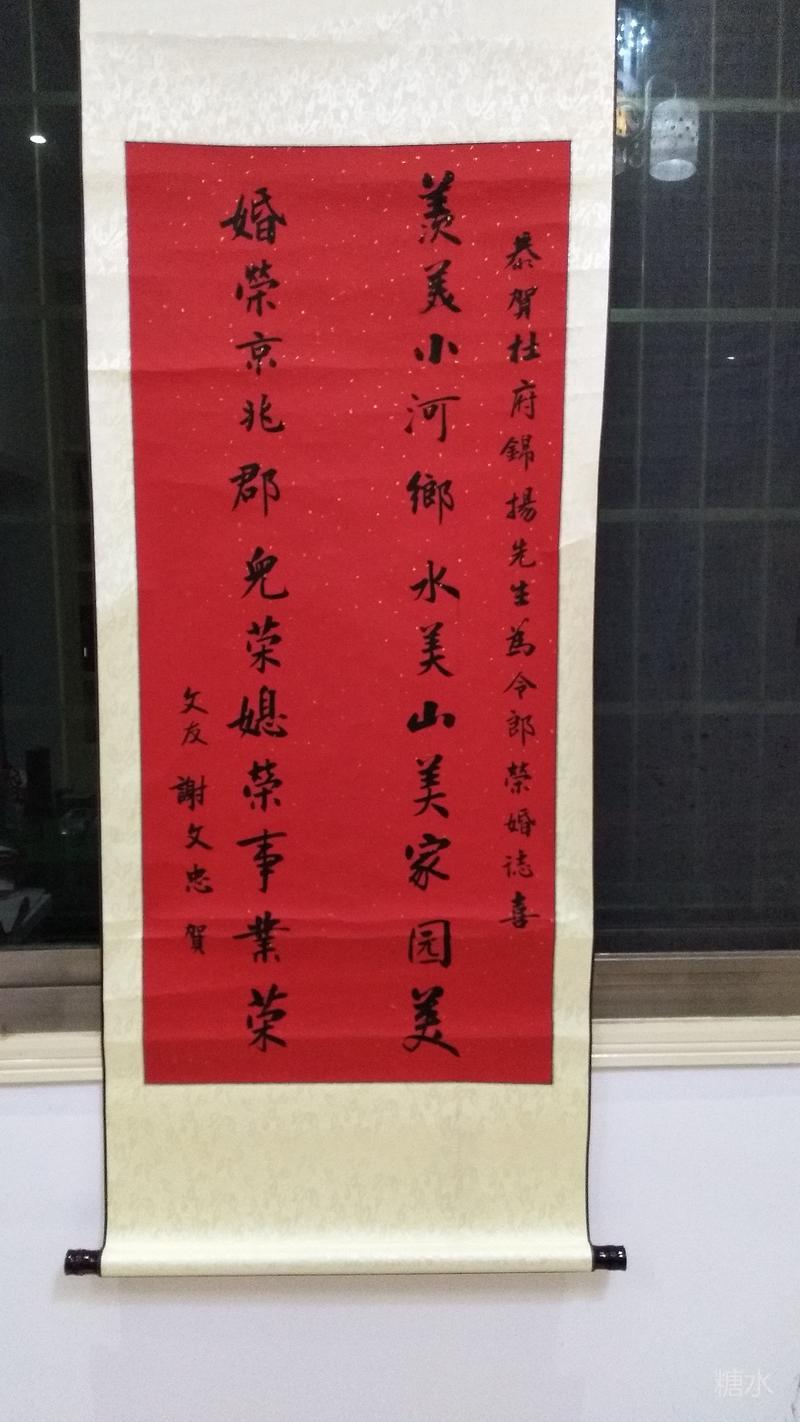 恭賀杜府錦揚先生為令郎榮婚誌喜
羡美小河鄉水美山美家园美
婚榮京兆郡兒荣媳榮事業荣
文友謝文忠賀
糖水